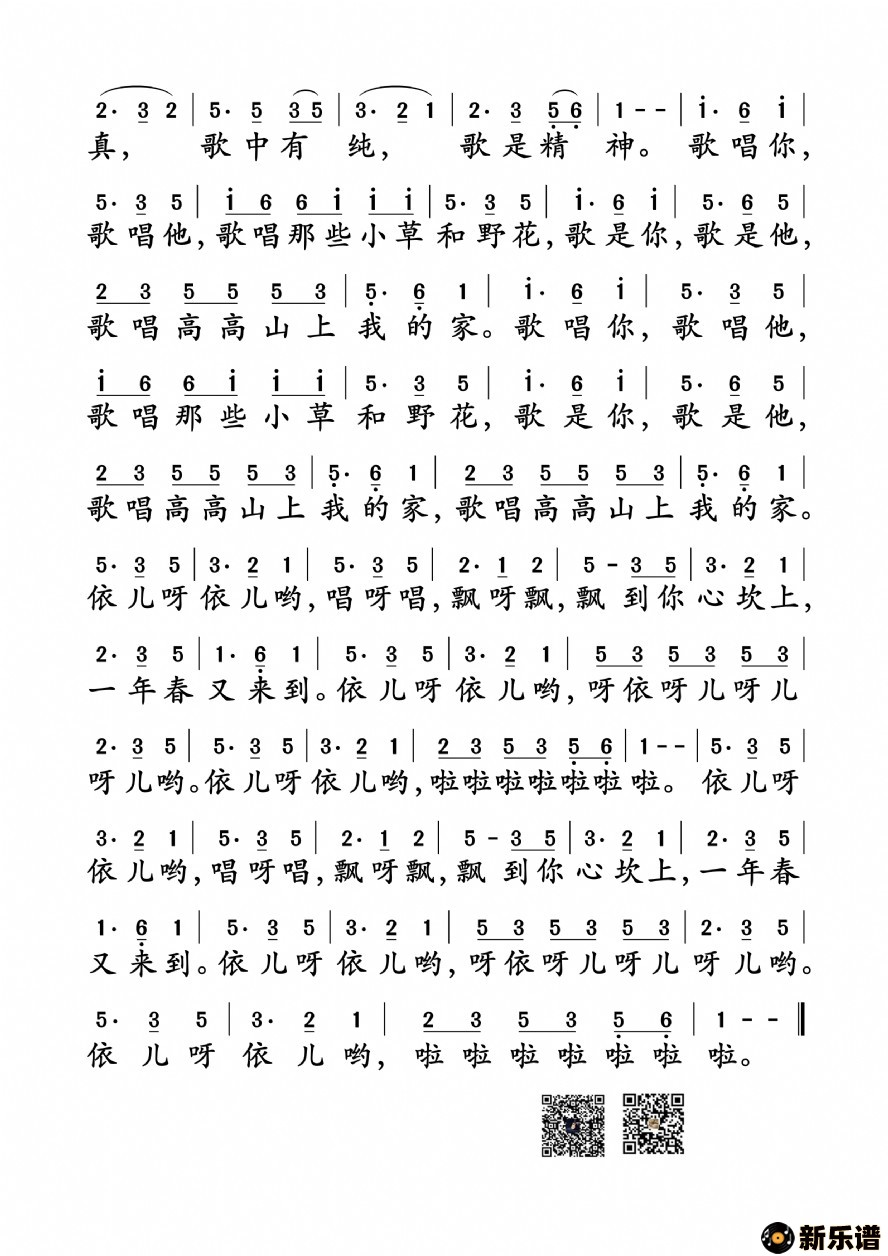 2· 3 2 | 5· 5 3 5 | 3· 2 1 | 2· 3 5 6 | 1 - - | i· 6 i |
真， 歌中有 纯， 歌是精 神。 歌唱你，
5· 3 5 | i 6 6 i i i | 5· 3 5 | i· 6 i | 5· 6 5 |
歌唱他，歌唱那些小草和野花，歌是你，歌是他，
2 3 5 5 5 3 | 5· 6 1 | i· 6 i | 5· 3 5 |
歌唱高高山上我的家。歌唱你，歌唱他，
i 6 6 i i i | 5· 3 5 | i· 6 i | 5· 6 5 |
歌唱那些小草和野花，歌是你，歌是他，
2 3 5 5 5 3 | 5· 6 1 | 2 3 5 5 5 3 | 5· 6 1 |
歌唱高高山上我的家，歌唱高高山上我的家。
5· 3 5 | 3· 2 1 | 5· 3 5 | 2· 1 2 | 5 - 3 5 | 3· 2 1 |
依儿呀依儿哟，唱呀唱，飘呀飘，飘到你心坎上，
2· 3 5 | 1· 6 1 | 5· 3 5 | 3· 2 1 | 5 3 5 3 5 3 |
一年春又来到。依儿呀依儿哟，呀依呀儿呀儿
2· 3 5 | 5· 3 5 | 3· 2 1 | 2 3 5 3 5 6 | 1 - - | 5· 3 5 |
呀儿哟。依儿呀依儿哟，啦啦啦啦啦啦啦。 依儿呀
3· 2 1 | 5· 3 5 | 2· 1 2 | 5 - 3 5 | 3· 2 1 | 2· 3 5 |
依儿哟，唱呀唱，飘呀飘，飘到你心坎上，一年春
1· 6 1 | 5· 3 5 | 3· 2 1 | 5 3 5 3 5 3 | 2· 3 5 |
又来到。依儿呀依儿哟，呀依呀儿呀儿呀儿哟。
5· 3 5 | 3· 2 1 | 2 3 5 3 5 6 | 1 - - ‖
依儿呀依儿哟，啦啦啦啦啦啦啦。
新乐谱